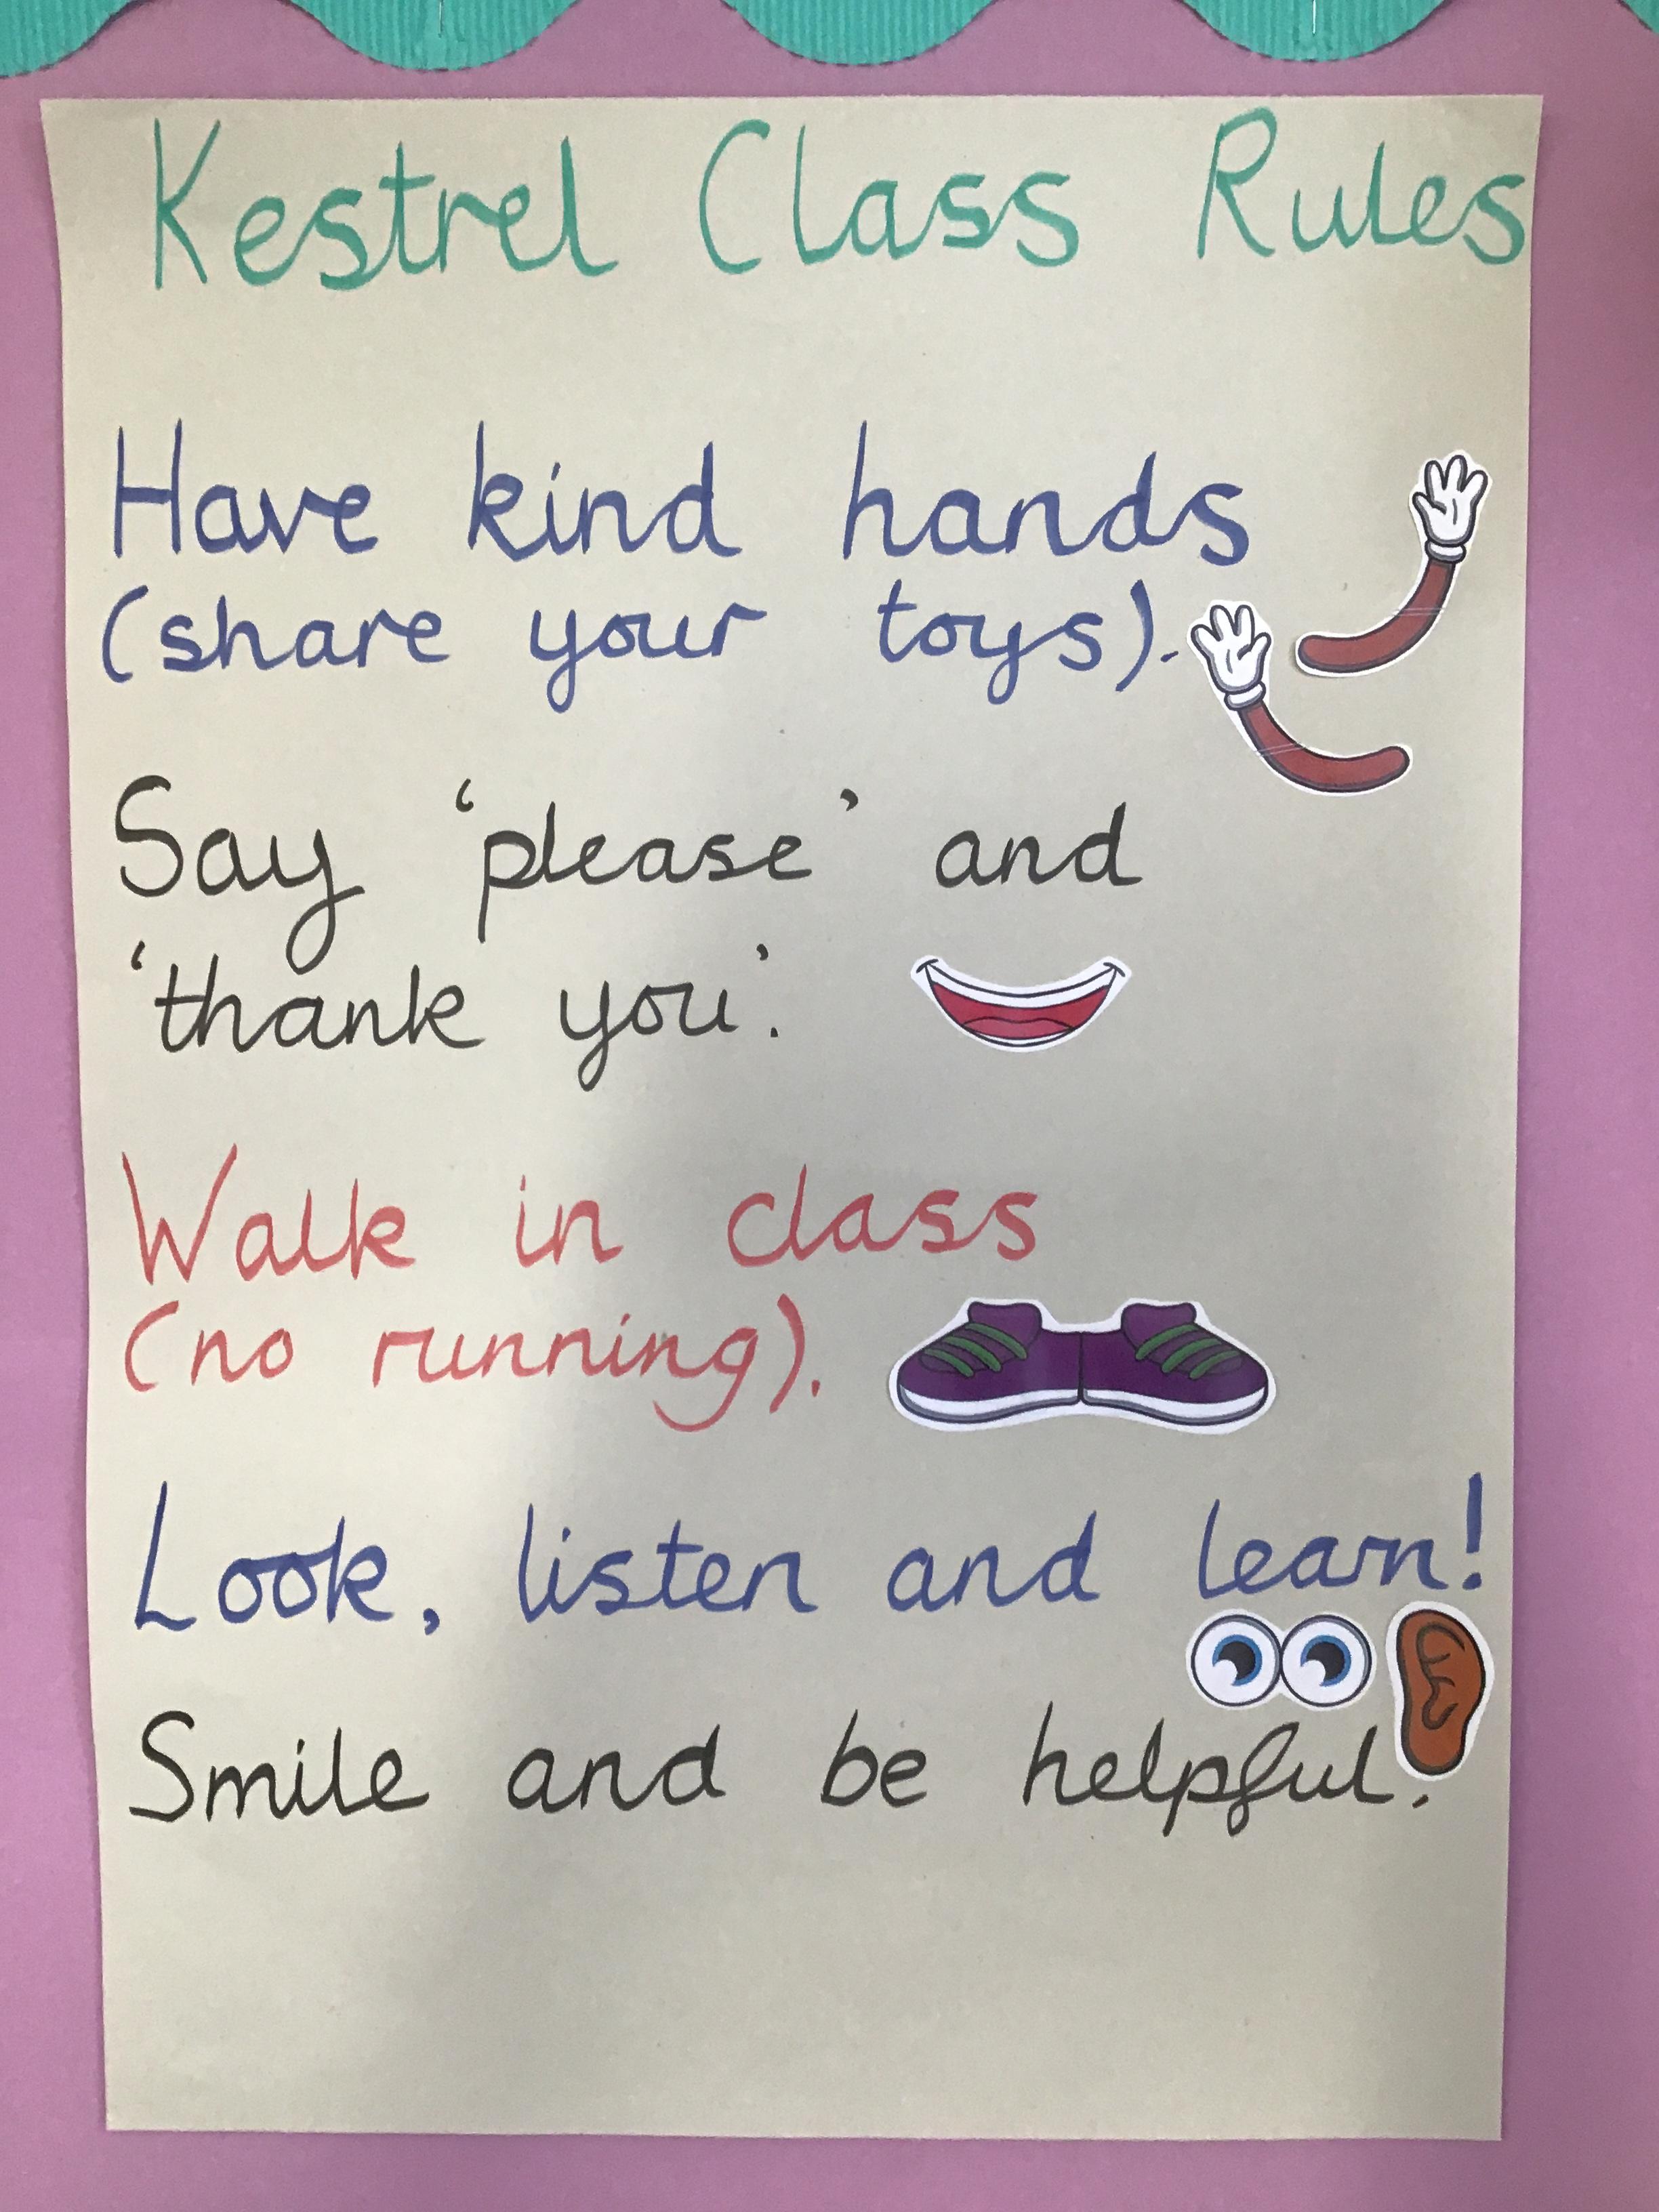 Kestrel Class Rules
Have kind hands
(share your toys).
Say ‘please’ and
‘thank you’.
Walk in class
(no running).
Look, listen and learn!
Smile and be helpful.